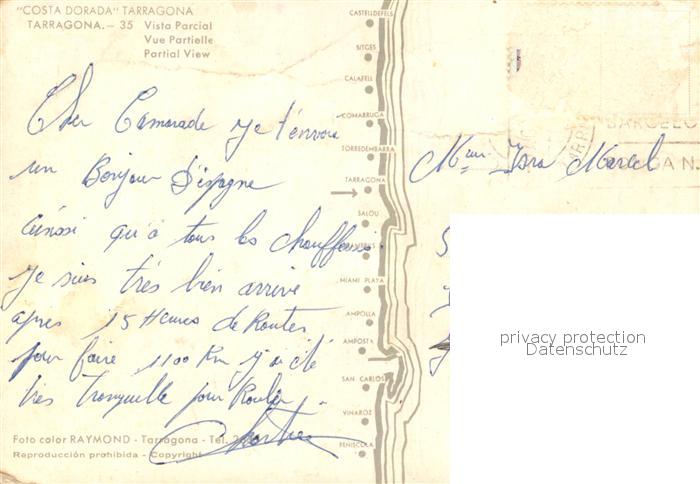 "COSTA DORADA" TARRAGONA
TARRAGONA.— 35 Vista Parcial
Vue Partielle
Partial View
Cher Camarade je t'envoie
un Bonjour d'espagne
ainssi qu'a tous les chauffeurs
je suis très bien arrivé
apres 15 Heures de Routes
pour faire 1100 Km j'ai été
très tranquille pour Rouler
Foto color RAYMOND - Tarragona - Tel.
Reproducción prohibida - Copyright
CASTELLDEFELS
SITGES
CALAFELL
COMARRUGA
TORREDEMBARRA
TARRAGONA
SALOU
MIAMI PLAYA
AMPOLLA
AMPOSTA
SAN CARLOS
VINAROZ
PEÑISCOLA
BARCELO
Marcel
privacy protection
Datenschutz